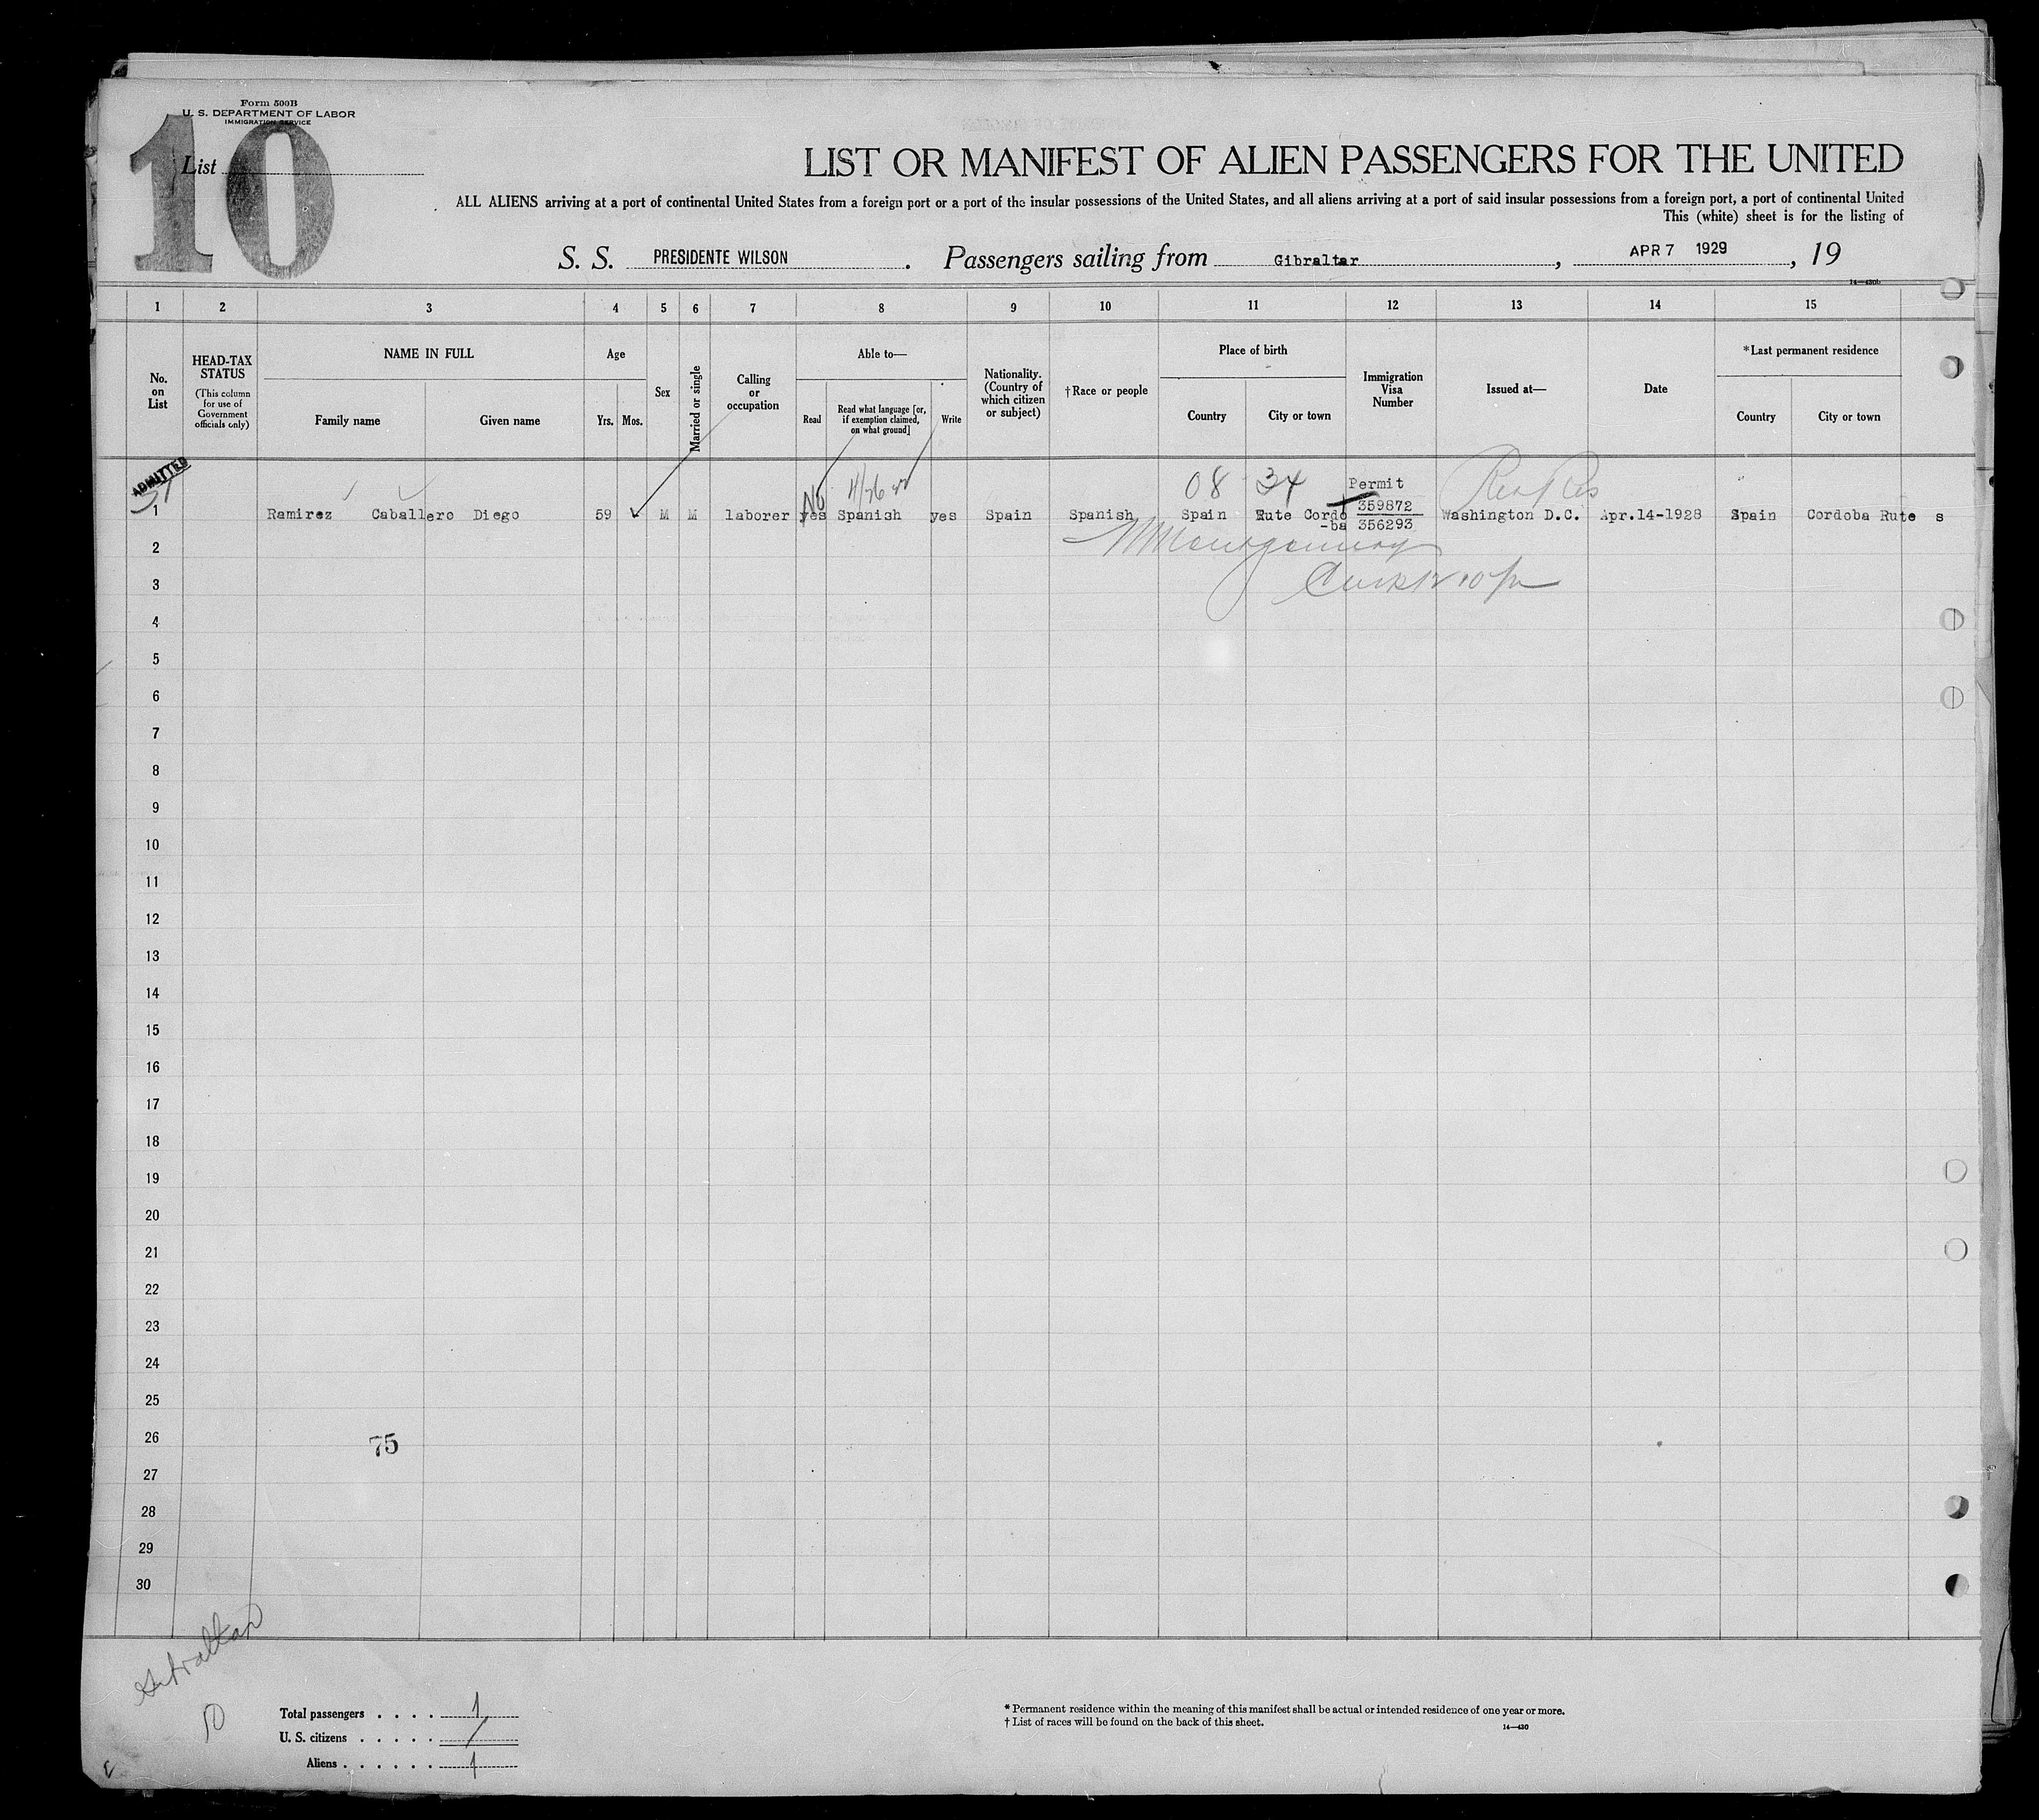 Form 500B
U. S. DEPARTMENT OF LABOR
IMMIGRATION SERVICE
10
List
LIST OR MANIFEST OF ALIEN PASSENGERS FOR THE UNITED
ALL ALIENS arriving at a port of continental United States from a foreign port or a port of the insular possessions of the United States, and all aliens arriving at a port of said insular possessions from a foreign port, a port of continental United
This (white) sheet is for the listing of
S. S. PRESIDENTE WILSON. Passengers sailing from Gibraltar, APR 7 1929, 19
14—430b
1 2 3 4 5 6 7 8 9 10 11 12 13 14 15
No. on List
HEAD-TAX STATUS
(This column for use of Government officials only)
NAME IN FULL
Family name
Given name
Age
Yrs.
Mos.
Sex
Married or single
Calling or occupation
Able to—
Read
Read what language [or, if exemption claimed, on what ground]
Write
Nationality. (Country of which citizen or subject)
†Race or people
Place of birth
Country
City or town
Immigration Visa Number
Issued at—
Date
*Last permanent residence
Country
City or town
ADMITTED
No
08 34 Permit
359872
1 Ramirez Caballero Diego 59 M M laborer yes Spanish yes Spain Spanish Spain Rute Cordo Washington D.C. Apr.14-1928 Spain Cordoba Rute s
-ba 356293
2
Montgomery
3
4
5
6
7
8
9
10
11
12
13
14
15
16
17
18
19
20
21
22
23
24
25
26
75
27
28
29
30
Gibraltar
10
Total passengers . . . . 1
U. S. citizens . . . . . /
Aliens . . . . . . 1
* Permanent residence within the meaning of this manifest shall be actual or intended residence of one year or more.
† List of races will be found on the back of this sheet.
14—430